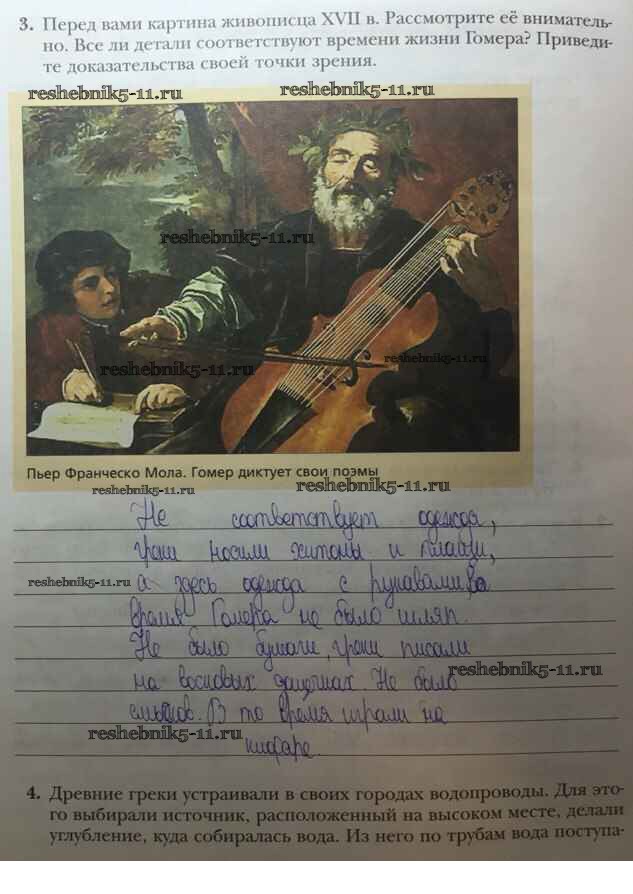 3. Перед вами картина живописца XVII в. Рассмотрите её вниматель-
но. Все ли детали соответствуют времени жизни Гомера? Приведи-
те доказательства своей точки зрения.
reshebnik5-11.ru
reshebnik5-11.ru
reshebnik5-11.ru
reshebnik5-11.ru
reshebnik5-11.ru
Пьер Франческо Мола. Гомер диктует свои поэмы
reshebnik5-11.ru
reshebnik5-11.ru
Не соответствует одежда,
греки носили хитоны и плащи,
reshebnik5-11.ru
а здесь одежда с рукавами, во
время Гомера не было шляп.
Не было бумаги, греки писали
reshebnik5-11.ru
на восковых дощечках. Не было
смычков. В то время играли на
reshebnik5-11.ru
кифаре.
4. Древние греки устраивали в своих городах водопроводы. Для это-
го выбирали источник, расположенный на высоком месте, делали
углубление, куда собиралась вода. Из него по трубам вода поступа-